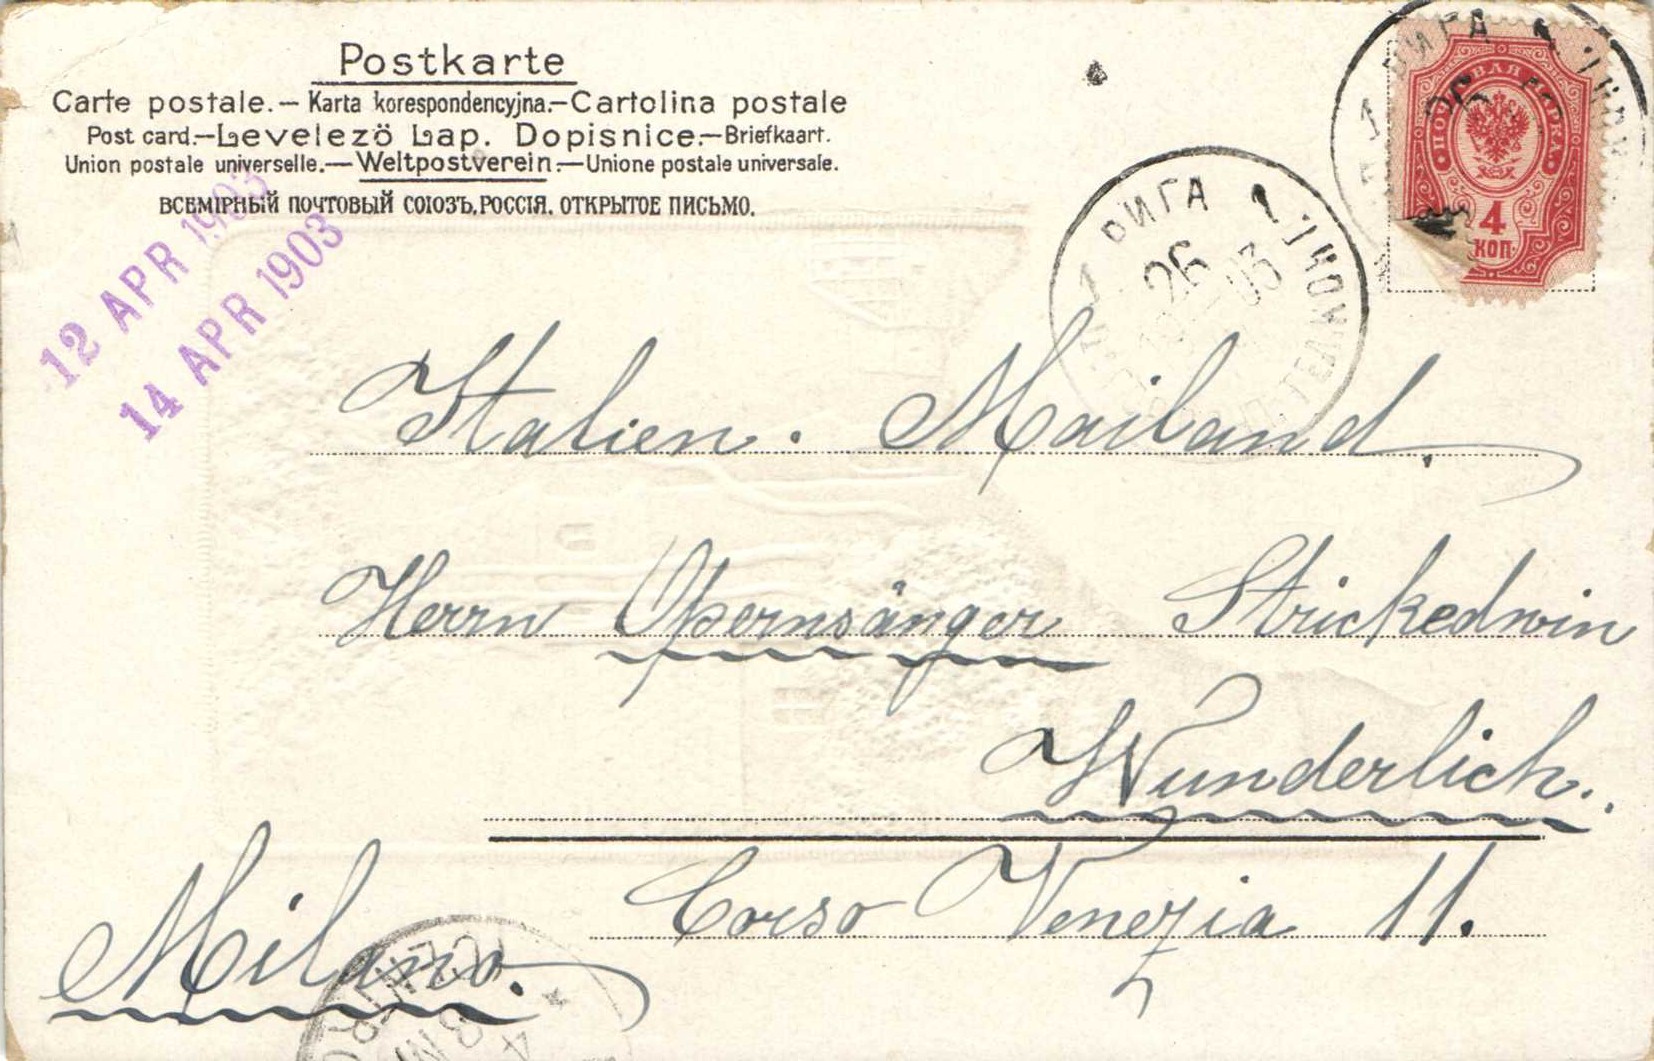 Postkarte
Carte postale.— Karta korespondencyjna.—Cartolina postale
Post card.—Levelezö Lap. Dopisnice.—Briefkaart.
Union postale universelle.—Weltpostverein.—Unione postale universale.
ВСЕМІРНЫЙ ПОЧТОВЫЙ СОЮЗЪ, РОССІЯ. ОТКРЫТОЕ ПИСЬМО.
12 APR 1903
14 APR 1903
РИГА 1
26
03
РИГА 1
26
ПОЧТОВАЯ МАРКА
4
КОП.
Italien. Mailand.
Herrn Opernsänger Strickedwin
Wunderlich.
Corso Venezia 11.
Milano.